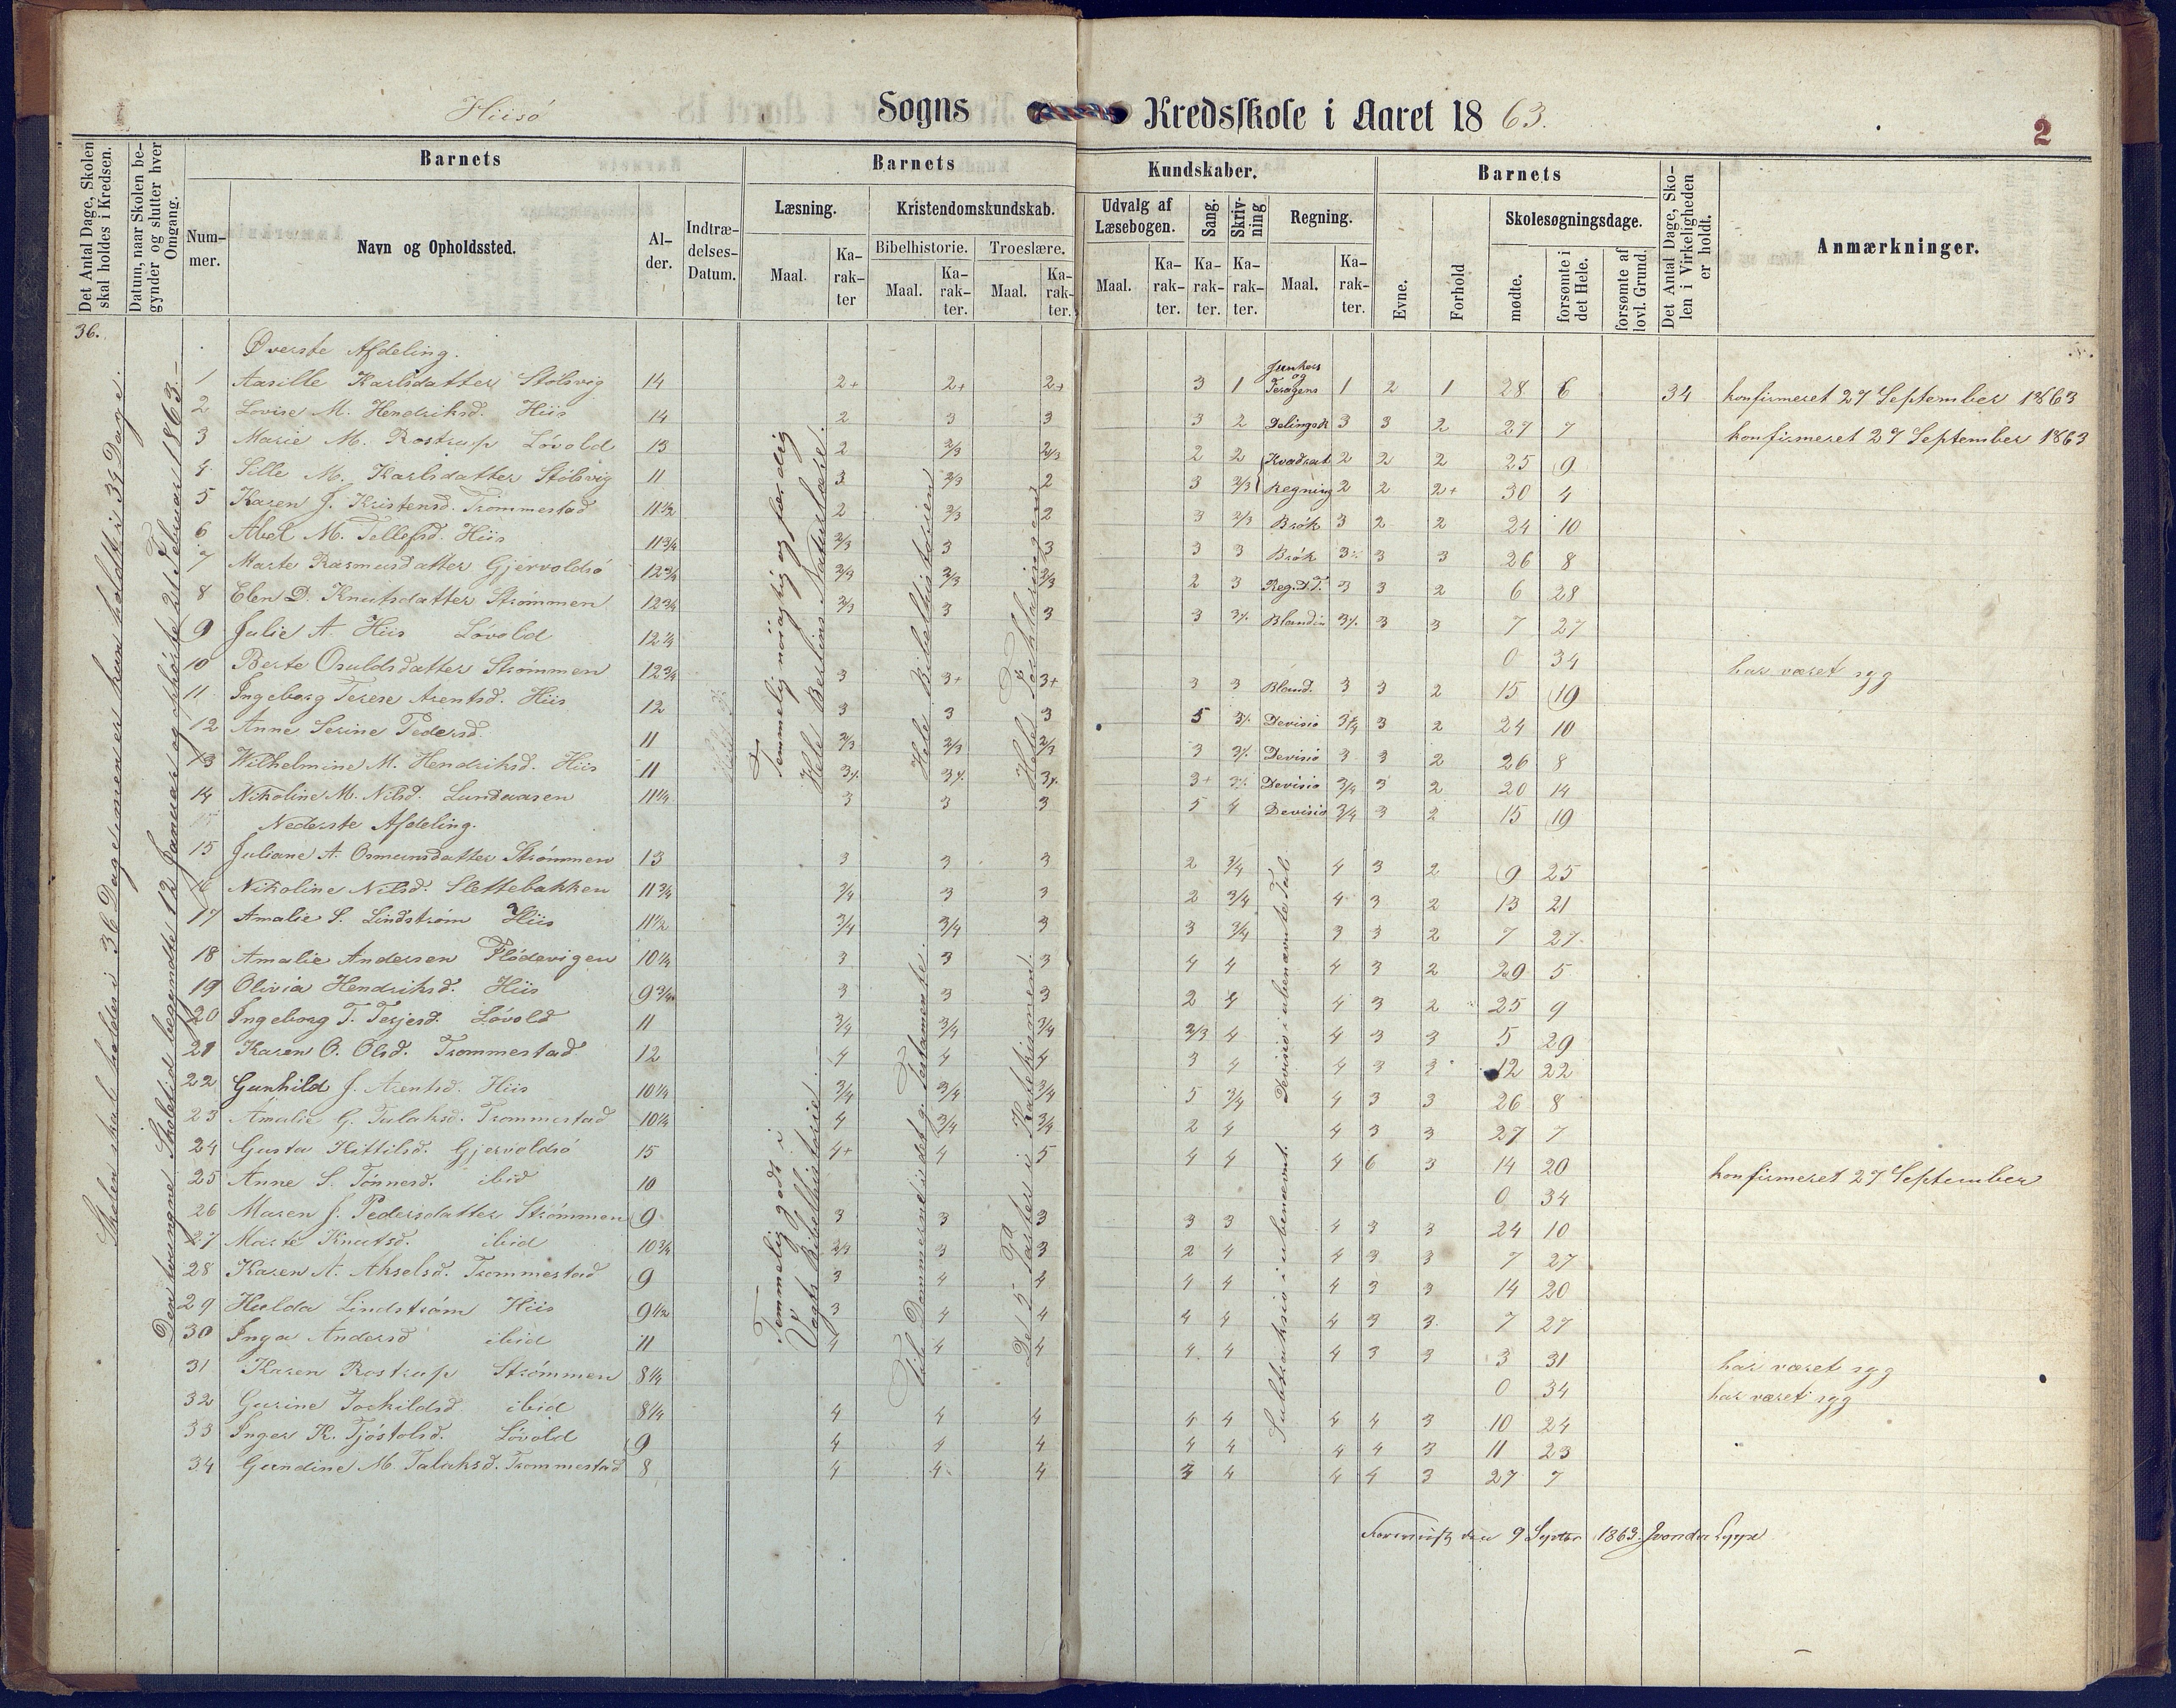 Hiisö Sogns Kredsskole i Aaret 1863.
2
Det Antal Dage, Skolen skal holdes i Kredsen.
Datum, naar Skolen begynder og slutter hver Omgang.
Barnets
Nummer.
Navn og Opholdssted.
Alder.
Indtrædelses-Datum.
Barnets Kundskaber.
Læsning.
Maal.
Karakter
Kristendomskundskab.
Bibelhistorie.
Maal.
Karakter.
Troeslære.
Maal.
Karakter.
Udvalg af Læsebogen.
Maal.
Karakter.
Sang.
Karakter.
Skrivning
Karakter.
Regning.
Maal.
Karakter.
Barnets
Evne.
Forhold
Skolesøgningsdage.
mødte.
forsømte i det Hele.
forsømte af lovl. Grund.
Det Antal Dage, Skolen i Virkeligheden er holdt.
Anmærkninger.
36.
Skolen skal holdes i 36 Dage men er kun holdt i 34 Dage.
Den tvungne Skoletid begyndte 12 Januar og ophörte 21 Februar 1863.
Överste Afdeling.
Temmelig nöiagtig og færdig
Hele Bibelhistorien
1 Aasille Karlsdatter Stölsvig 14 2+ 2+ 2+ 3 1 1 2 1 28 6 34 konfirmeret 27 September 1863
2 Lovise M. Hendriksd. Hiis 14 2 3 3 3 2 3 3 2 27 7 konfirmeret 27 September 1863
3 Marie M. Rostrup Lövold 13 2 2/3 2/3 2 2 Kvadrat 2 2 2 25 9
4 Sille M. Karlsdatter Stölsvig 11 3 2/3 2 3 2/3 Regning 2 2 2+ 30 4
5 Karen J. Kristensd. Trommestad 11 1/2 2 2/3 2 3 2/3 Brök 3 2 2 24 10
6 Abel M. Tellefsd. Hiis 11 3/4 2/3 3 3 3 3 Brök 3 3 26 8
7 Marte Rasmusdatter Gjervoldsö 12 3/4 2/3 2/3 2/3 2 3 Reg.d.T. 3 3 2 6 28
8 Elen D. Knutsdatter Strömmen 12 3/4 2/3 3 3 3 3 3 7 27
9 Julie A. Hiis Lövold 12 1/4 0 34 har været syg
10 Berte Osuldsdatter Strömmen 12 3/4 3 3+ 3+ 3 3 Bland. 3 3 2 15 19
11 Ingeborg Terese Arentsd. Hiis 12 3 3 3 5 Devisio 3/4 3 2 24 10
12 Anne Serine Pedersd. 11 2/3 2/3 2/3 3 Devisio 3 3 2 26 8
13 Wilhelmine M. Hendriksd. Hiis 11 3+ Devisio 3/4 3 2 20 14
14 Nikoline M. Nilsd. Lundaasen 11 1/4 3 3 3 5 4 Devisio 3/4 3 2 15 19
Nederste Afdeling.
Temmelig godt i
Vogts Bibelhistorie.
Devisio i ubenævnte Tal.
Subtraksio i ubenævnt.
15 Juliane A. Osmunsdatter Strömmen 13 3 3 3 2 3/4 4 3 2 9 25
16 Nikoline Nilsd. Slettebakken 11 3/4 3/4 3 3 2 3/4 4 3 2 13 21
17 Amalie S. Lindström Hiis 11 1/2 3/4 3/4 3 3 3/4 3 3 2 7 27
18 Amalie Andersen Flödevigen 10 1/4 3 3 3 4 4 4 3 2 29 5
19 Olivia Hendriksd. Hiis 9 3/4 3 3 3 2 4 4 3 2 25 9
20 Ingeborg T. Terjesd. Lövold 11 3/4 3/4 3/4 2/3 4 4 3 3 5 29
21 Karen O. Olsd. Trommestad 12 4 4 4 3 4 4 3 3 12 22
22 Gunhild J. Arentsd. Hiis 10 1/4 3/4 3/4 3/4 5 3/4 4 3 3 26 8
23 Amalie G. Talaksd. Trommestad 10 1/4 4 3/4 3/4 2 4 4 3 3 27 7
24 Gusta Kittilsd. Gjervoldsö 15 4+ 4 5 4 4 4 6 3 14 20 konfirmeret 27 September
25 Anne S. Tönnesd. ibid 10 0 34
26 Maren J. Pedersdatter Strömmen 9 3 3 3 3 3 4 3 3 24 10
27 Marte Knutsd. ibid 10 3/4 2/3 3 3 2 4 4 3 3 7 27
28 Karen A. Akselsd. Trommestad 9 3 4 4 4 4 4 3 3 14 20
29 Hulda Lindström Hiis 9 1/2 3 4 4 4 4 4 3 3 7 27
30 Inga Andersd ibid 11 4 4 4 4 4 4 3 3 3 31 har været syg
31 Karen Rostrup Strömmen 8 1/4 0 34 har været syg
32 Gurine Torkildsd ibid 8 1/4 4 4 4 4 4 4 4 3 10 24
33 Inger K. Tjöstolsd. Lövold 9 4 4 4 4 4 4 4 3 11 23
34 Gundine M. Talaksd. Trommestad 8 4 4 4 3 4 4 4 3 27 7
9 Septbr 1863